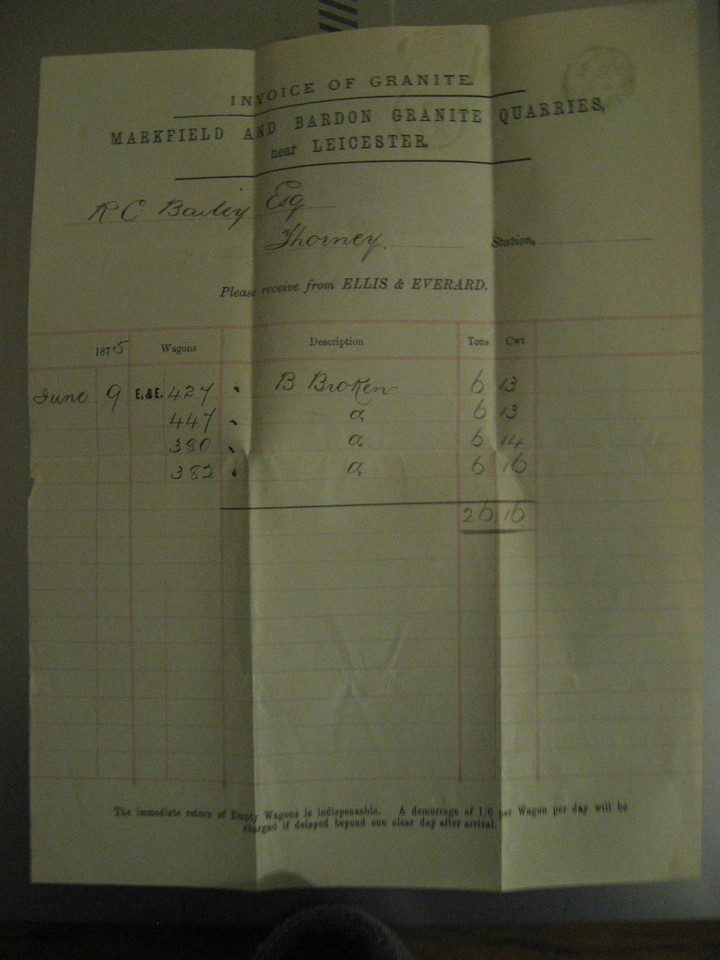 INVOICE OF GRANITE.
MARKFIELD AND BARDON GRANITE QUARRIES,
near LEICESTER.
R C Bailey Esq
Thorney. Station,
Please receive from ELLIS & EVERARD.
1875 Wagons Description Tons Cwt
June 9 E.&E. 427 B Broken 6 13
447 a 6 13
380 a 6 14
382 a 6 16
26 16
The immediate return of Empty Wagons is indispensable. A demurrage of 1/6 per Wagon per day will be
charged if delayed beyond one clear day after arrival.